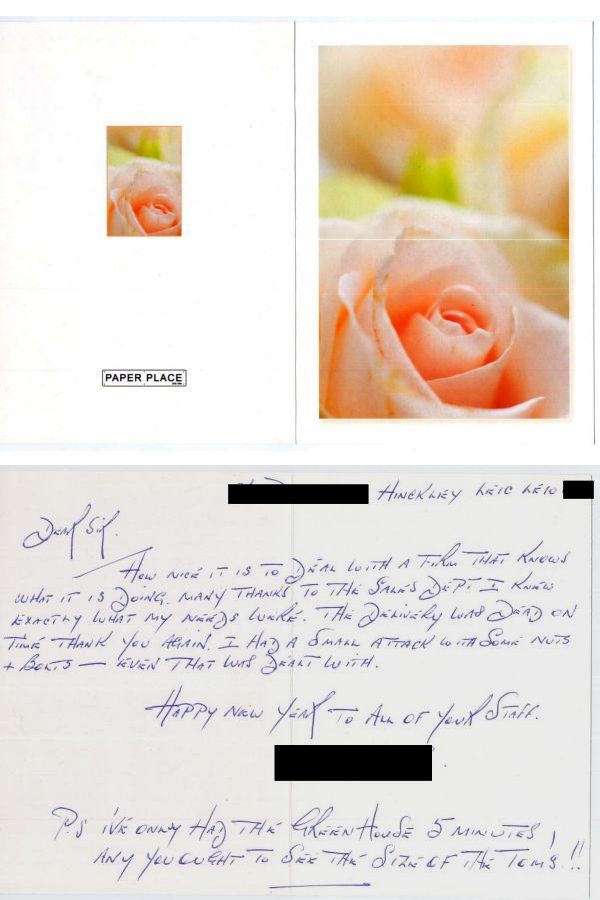 PAPER PLACE
HINCKLEY LEIC LE10
DEAR SIR.
HOW NICE IT IS TO DEAL WITH A FIRM THAT KNOWS
WHAT IT IS DOING. MANY THANKS TO THE SALES DEPT I KNEW
EXACTLY WHAT MY NEEDS WERE. THE DELIVERY WAS DEAD ON
TIME THANK YOU AGAIN. I HAD A SMALL ATTACK WITH SOME NUTS
+ BOLTS — EVEN THAT WAS DEALT WITH.
HAPPY NEW YEAR TO ALL OF YOUR STAFF.
P.S I'VE ONLY HAD THE GREENHOUSE 5 MINUTES,
ANY YOU OUGHT TO SEE THE SIZE OF THE TOMS.!!